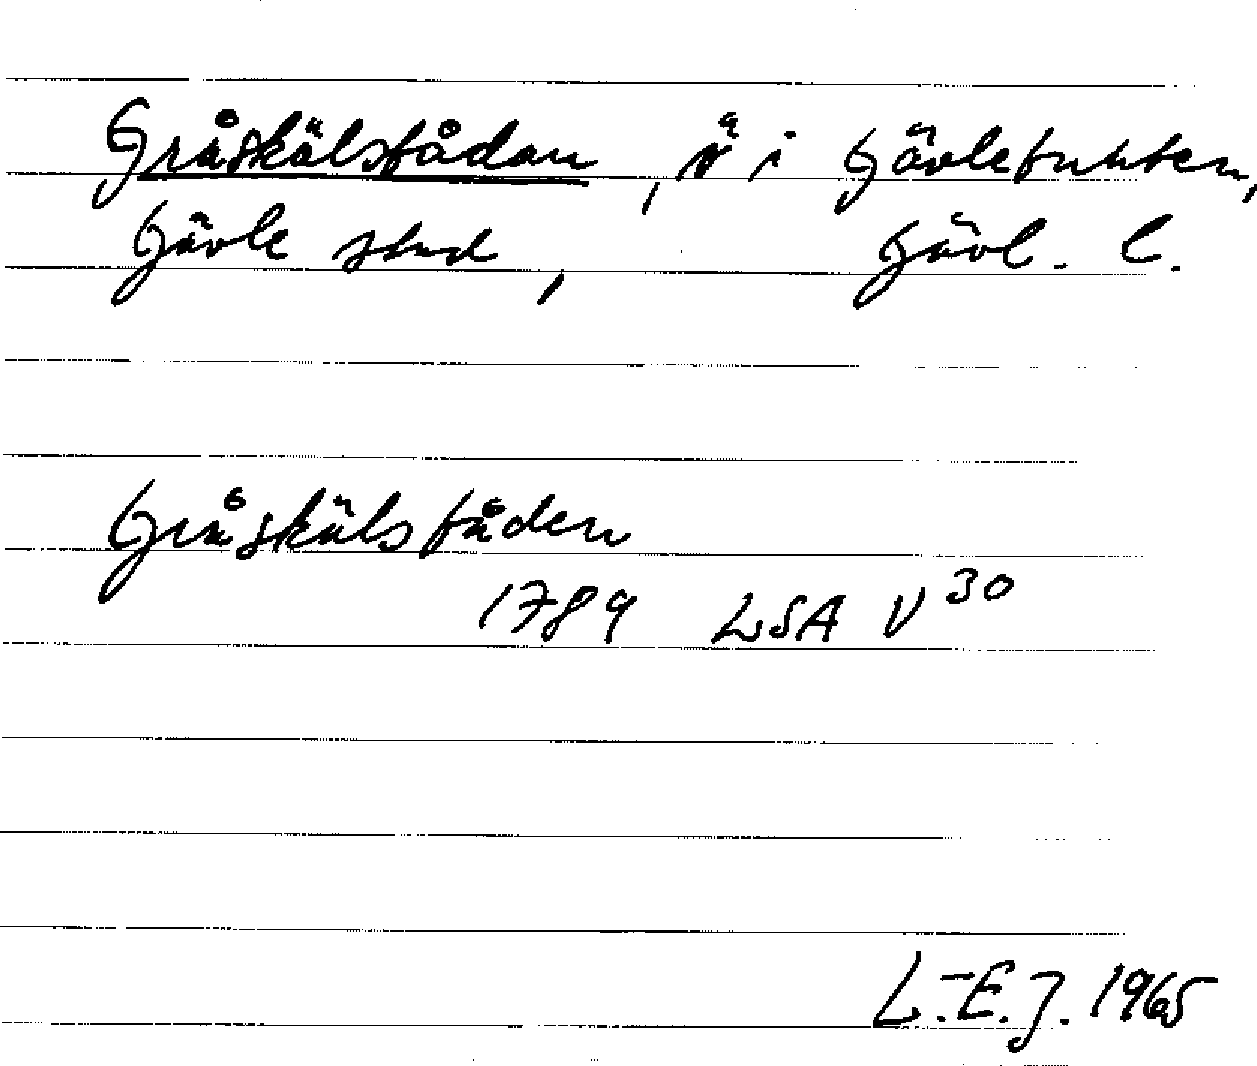 Gråskälsbådan, i Gävlebukten,
Gävle stad, Gävl. l.
Gråskälsbåden
1789 LSA V 30
L.-E.J. 1965